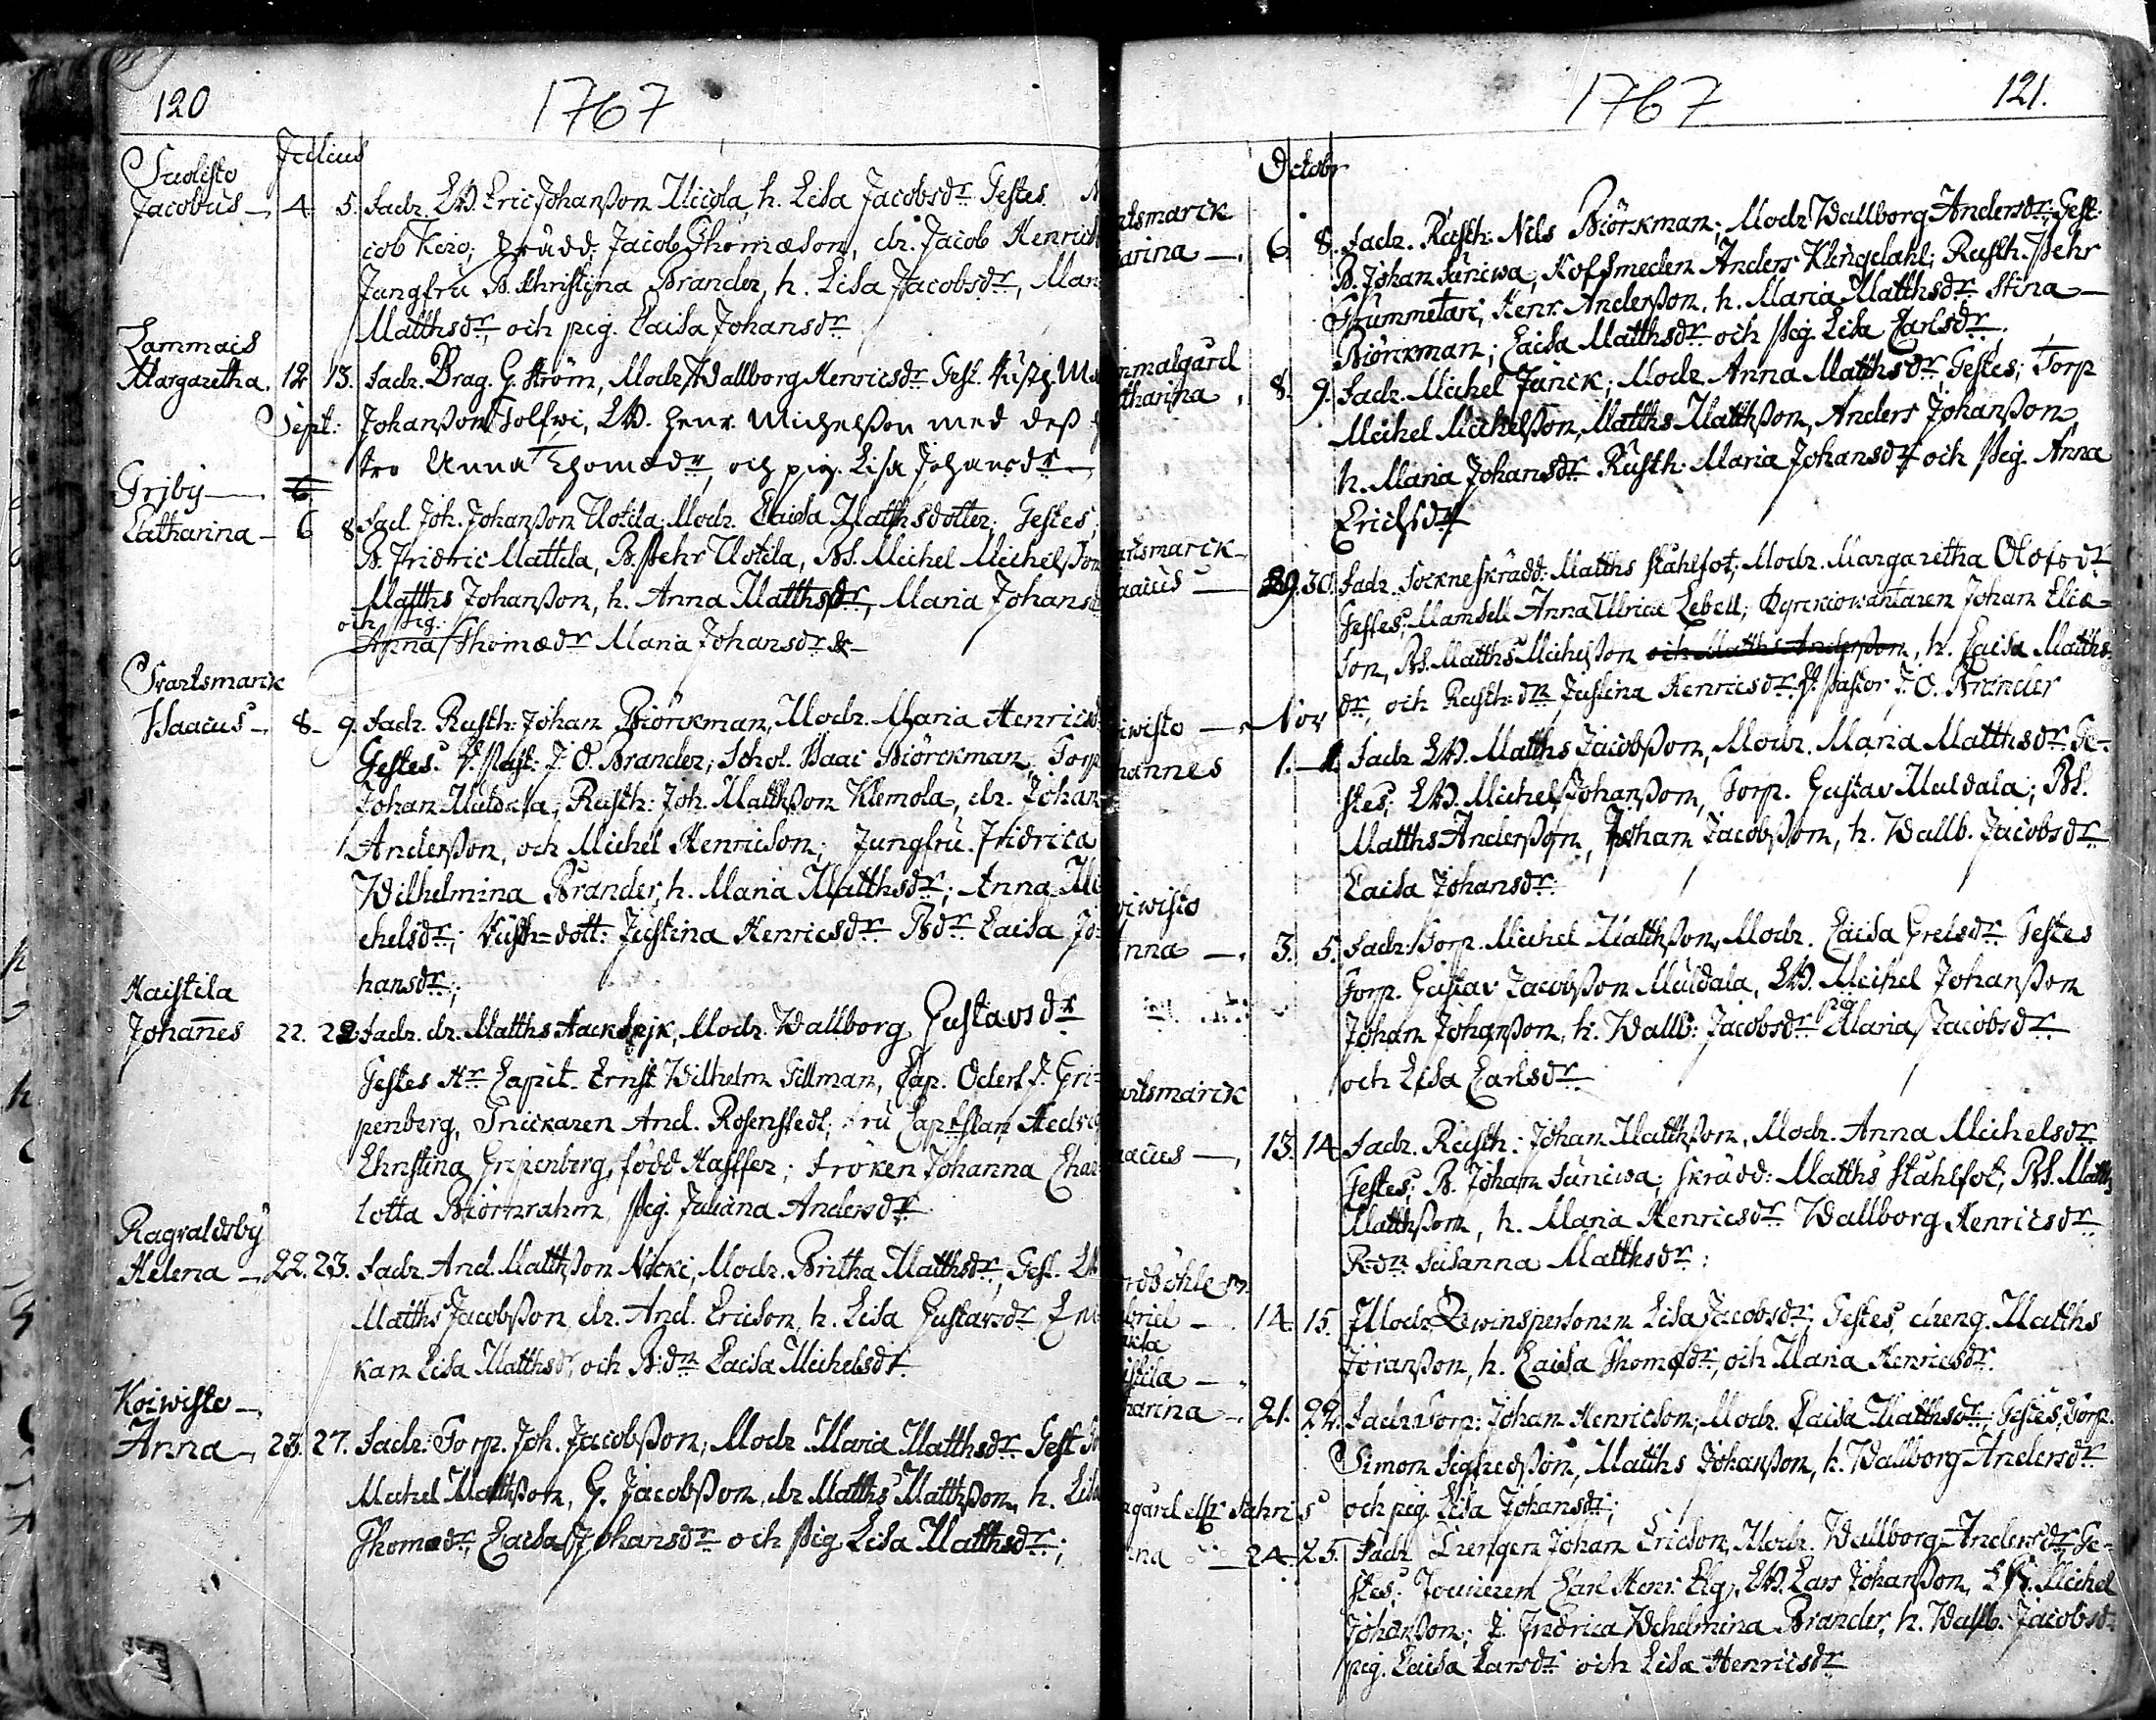 120
1767
Julius
Suolisto
Jacobus – 4. 5. Fadr. LB. Eric Johanßon Uciola, h. Lisa Jacobsdr Testes
cob Keio; Skrädd. Jacob Thomæson, dr. Jacob Henrich
Jungfru B. Christina Brander, h. Lisa Jacobsdr, Mar
Matthsdr, och pig. Caisa Johansdr
Lammais
Margaretha. 12 13. Fadr. Brag. G. Ström, Modr. Wallborg Henricsdr Test.
Sept: Johanßon Tolfwi, LB. Henr. Michelßon med deß
stro Anna Thomædr, och pig. Lisa Johansdr
Griby – 6
Catharina – 6 8 Fad. Joh. Johanßon Uotila, Modr. Caisa Matthsdotter; Testes;
B. Fridric Mattila, B. Pehr Uotila, BS. Michel Michelßon
Matths Johanßon, h. Anna Matthsdr, Maria Johans
och pig.
Anna Thomædr Maria Johansdr
Svartsmarck
Isaacus – 8 – 9. Fadr. Rusth: Johan Biörckman, Modr. Maria Henrics
Testes. V. Past: J. O. Brander, Schol. Isaac Biörckman, Torp
Johan Muldala, Rusth: Joh. Matthßon Klemola, dr. Johan
Anderßon, och Michel Henricson; Jungfru. Fridrica
Wilhelmina Brander, h. Maria Matthsdr; Anna Mi
chelsdr; Rusth=dott: Justina Henricsdr Bdr Caisa Jo=
hansdr;
Haistila
Johan̄es 22. 22. Fadr. dr. Matths Hackspik, Modr. Wallborg Gustavsdr
Testes Hr Capit. Ernst Wilhelm Gillman, Cap. J. Gri=
penberg, Snickaren And. Rosenstedt; Fru Capitskan Hedvig
Christina Gripenberg, född Hastfer; Fröken Johanna Char
lotta Biörnrahm, Pig. Juliana Andersdr
Ragvaldsby
Helena – 22. 23. Fadr. And. Matthßon Nicki, Modr. Britha Matthsdr, Test. LB
Matths Jacobßon, dr. And. Ericson, h. Lisa Gustavsdr Enc
kan Lisa Matthsdr, och B:dr Caisa Michelsdr
Koiwisto –
Anna – 23. 27. Fadr. Torp. Joh. Jacobßon, Modr. Maria Matthsdr Test
Michel Matthßon, G. Jacobßon, dr Matths Matthßon, h. Lisa
Thomædr, Caisa Johansdr och pig Lisa Matthsdr;
1767
121.
Octobr
rtsmarck
arina –. 6. 8. Fadr. Rusth: Nils Biörkman; Modr Wallborg Andersdr, Test.
B. Johan Suniwa; Hofsmeden Anders Klingdahl; Rusth. Pehr
Tummetari, Henr. Anderßon, h. Maria Matthsdr Stina –
Biörckman; Caisa Matthsdr och Pig. Lisa Carlsdr.
mmalgård
tharina. 8. 9. Fadr. Michel Junck; Modr. Anna Matthsdr, Testes; Torp
Michel Michelßon, Matths Matthßon, Anders Johanßon,
h. Maria Johansdr Rusth: Maria Johansdr och Pig. Anna
Erichsdr
artsmarck
aacus – 29. 30. Fadr. Sockneskrädd: Matths Stählfot; Modr. Margaretha Olofsdr
Testes; Mamsell Anna Ulrica Lebell; Kyrkiowäktaren Johan Eliæ=
son, BS. Matths Michelßon och Matths Anderßon, h. Caisa Matths
dr, och Rusth:dr Justina Henricsdr. V. Pastor J. O. Brander
iwisto – Nov
hannes 1. – Fadr LB. Matths Jacobßon, Modr. Maria Matthsdr Te=
stes; LB. Michel Johanßon, Torp. Gustav Muldala; BS.
Matths Anderßon, Johan Jacobßon, h. Wallb. Jacobsdr
Caisa Johansdr.
iwisto
nna –. 3. 5. Fadr: Torp. Michel Matthßon, Modr. Caisa Grelsdr Testes
Torp. Gustav Jacobßon Muldala, LB. Michel Johanßon
Johan Johanßon, h. Wallb: Jacobsdr Pig Maria Jacobsdr
och Lisa Carlsdr
artsmarck
aacus –. 13. 14. Fadr. Rusth.: Johan Matthßon, Modr. Anna Michelsdr
Testes; B. Johan Suniwa; Skrädd: Matths Stählfot; BS. Matths
Matthßon, h. Maria Henricsdr Wallborg Henricsdr
R:dr Susanna Matthsdr:
rdböhle
briel – 14. 15. Modr. Qwinspersonen Lisa Jacobsdr; Testes, dreng. Matths
Göranßon, h. Caisa Thomædr, och Maria Henricsdr.
istila –.
harina –. 21. 22. Fadr Torp: Johan Henricson; Modr. Caisa Matthsdr Testes, Torp.
Simon Sigfredßon, Matths Johanßon, h. Wallborg Andersdr
och pig. Lisa Johansdr;
gård
nna – 24. 25. Fadr Drengen Johan Ericson, Modr. Wallborg Andersdr Te=
stes; Carl Henr. Elg, LB. Lars Johanßon, LB. Michel
Johanßon; J. Fridrica Wilhelmina Brander, h. Wallb. Jacobsd
pig. Caisa Larsdr och Lisa Henricsdr